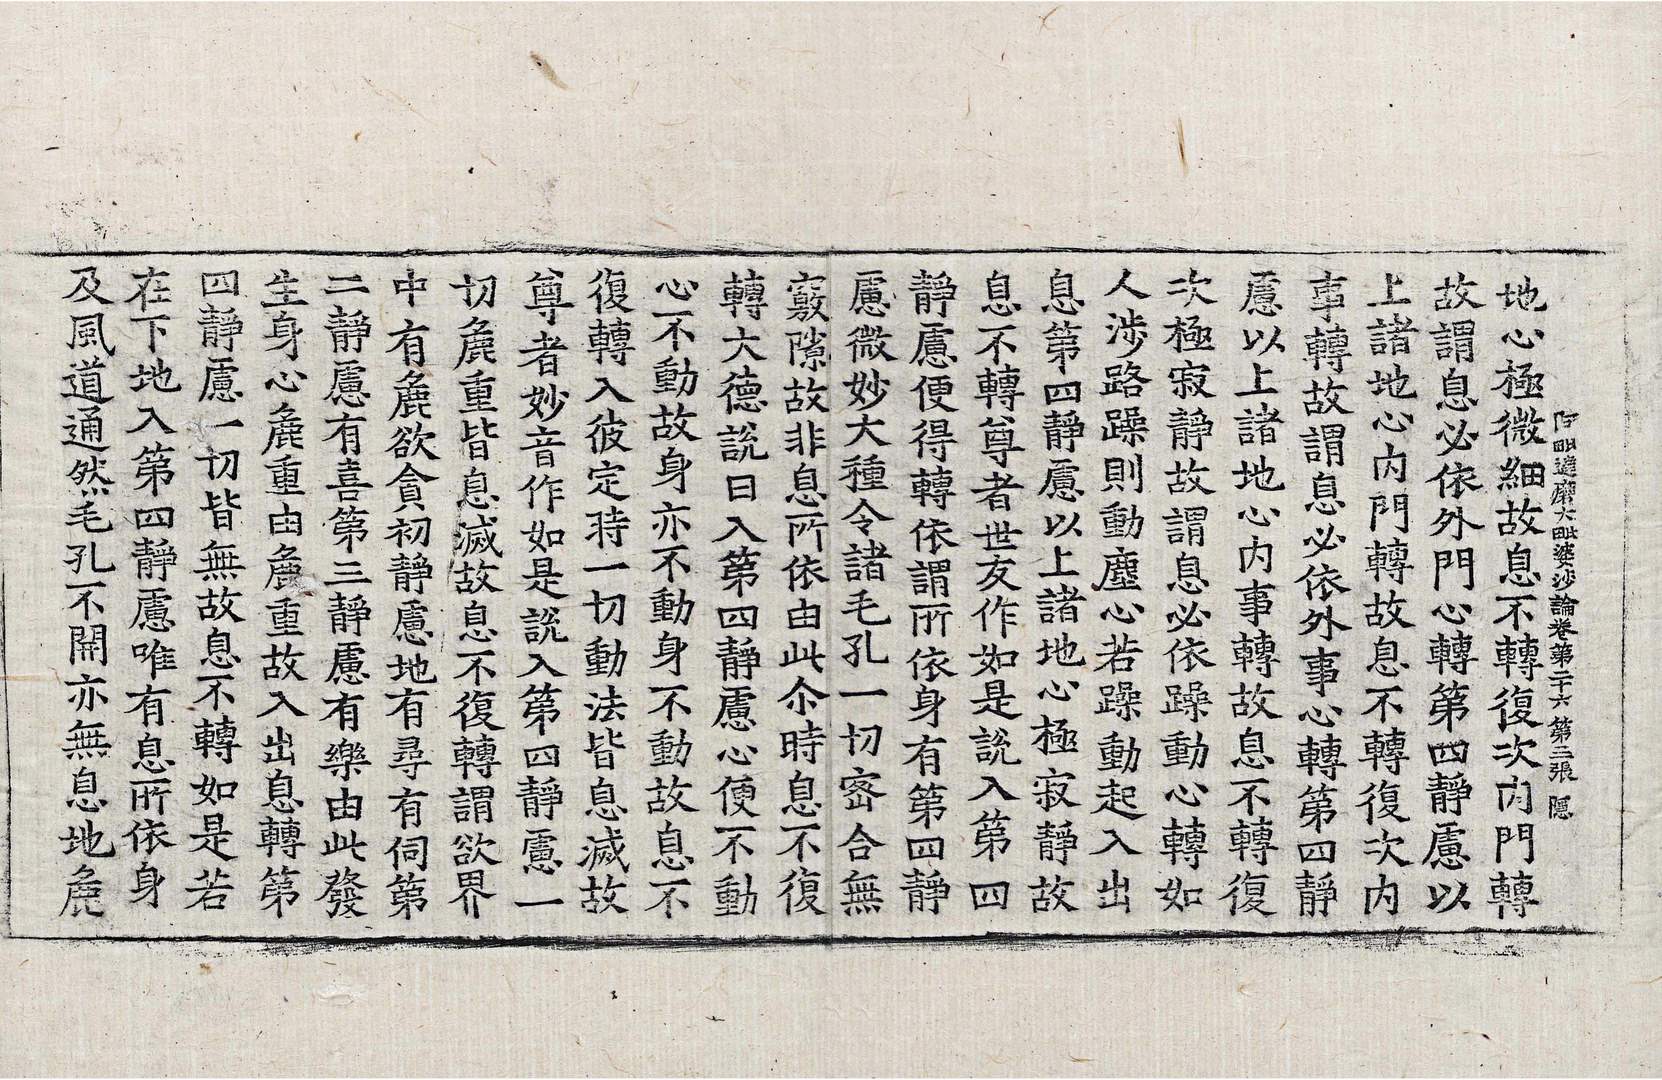 阿毗達磨大毗婆沙論卷第二十六 第二張 隱
地心極微細故息不轉復次內門轉
故謂息必依外門心轉第四靜慮以
上諸地心內門轉故息不轉復次內
事轉故謂息必依外事心轉第四靜
慮以上諸地心內事轉故息不轉復
次極寂靜故謂息必依躁動心轉如
人涉路躁則動塵心若躁動起入出
息第四靜慮以上諸地心極寂靜故
息不轉尊者世友作如是說入第四
靜慮便得轉依謂所依身有第四靜
慮微妙大種令諸毛孔一切密合無
竅隙故非息所依由此尒時息不復
轉大德說曰入第四靜慮心便不動
心不動故身亦不動身不動故息不
復轉入彼定時一切動法皆息滅故
尊者妙音作如是說入第四靜慮一
切麁重皆息滅故息不復轉謂欲界
中有麁欲貪初靜慮地有尋有伺第
二靜慮有喜第三靜慮有樂由此發
生身心麁重由麁重故入出息轉第
四靜慮一切皆無故息不轉如是若
在下地入第四靜慮唯有息所依身
及風道通然毛孔不開亦無息地麁